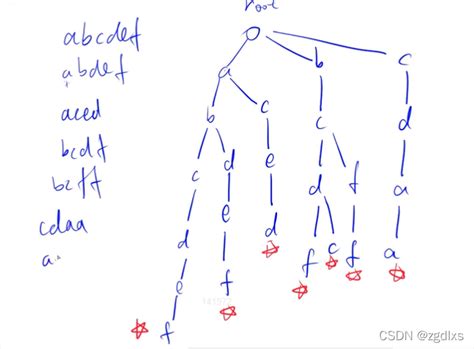 root
abcdef
abdef
aced
bcdf
bcff
cdaa
a
a b c
b c c d
c d e d f a
d e d f c f a
e f
f
CSDN @zgdlxs